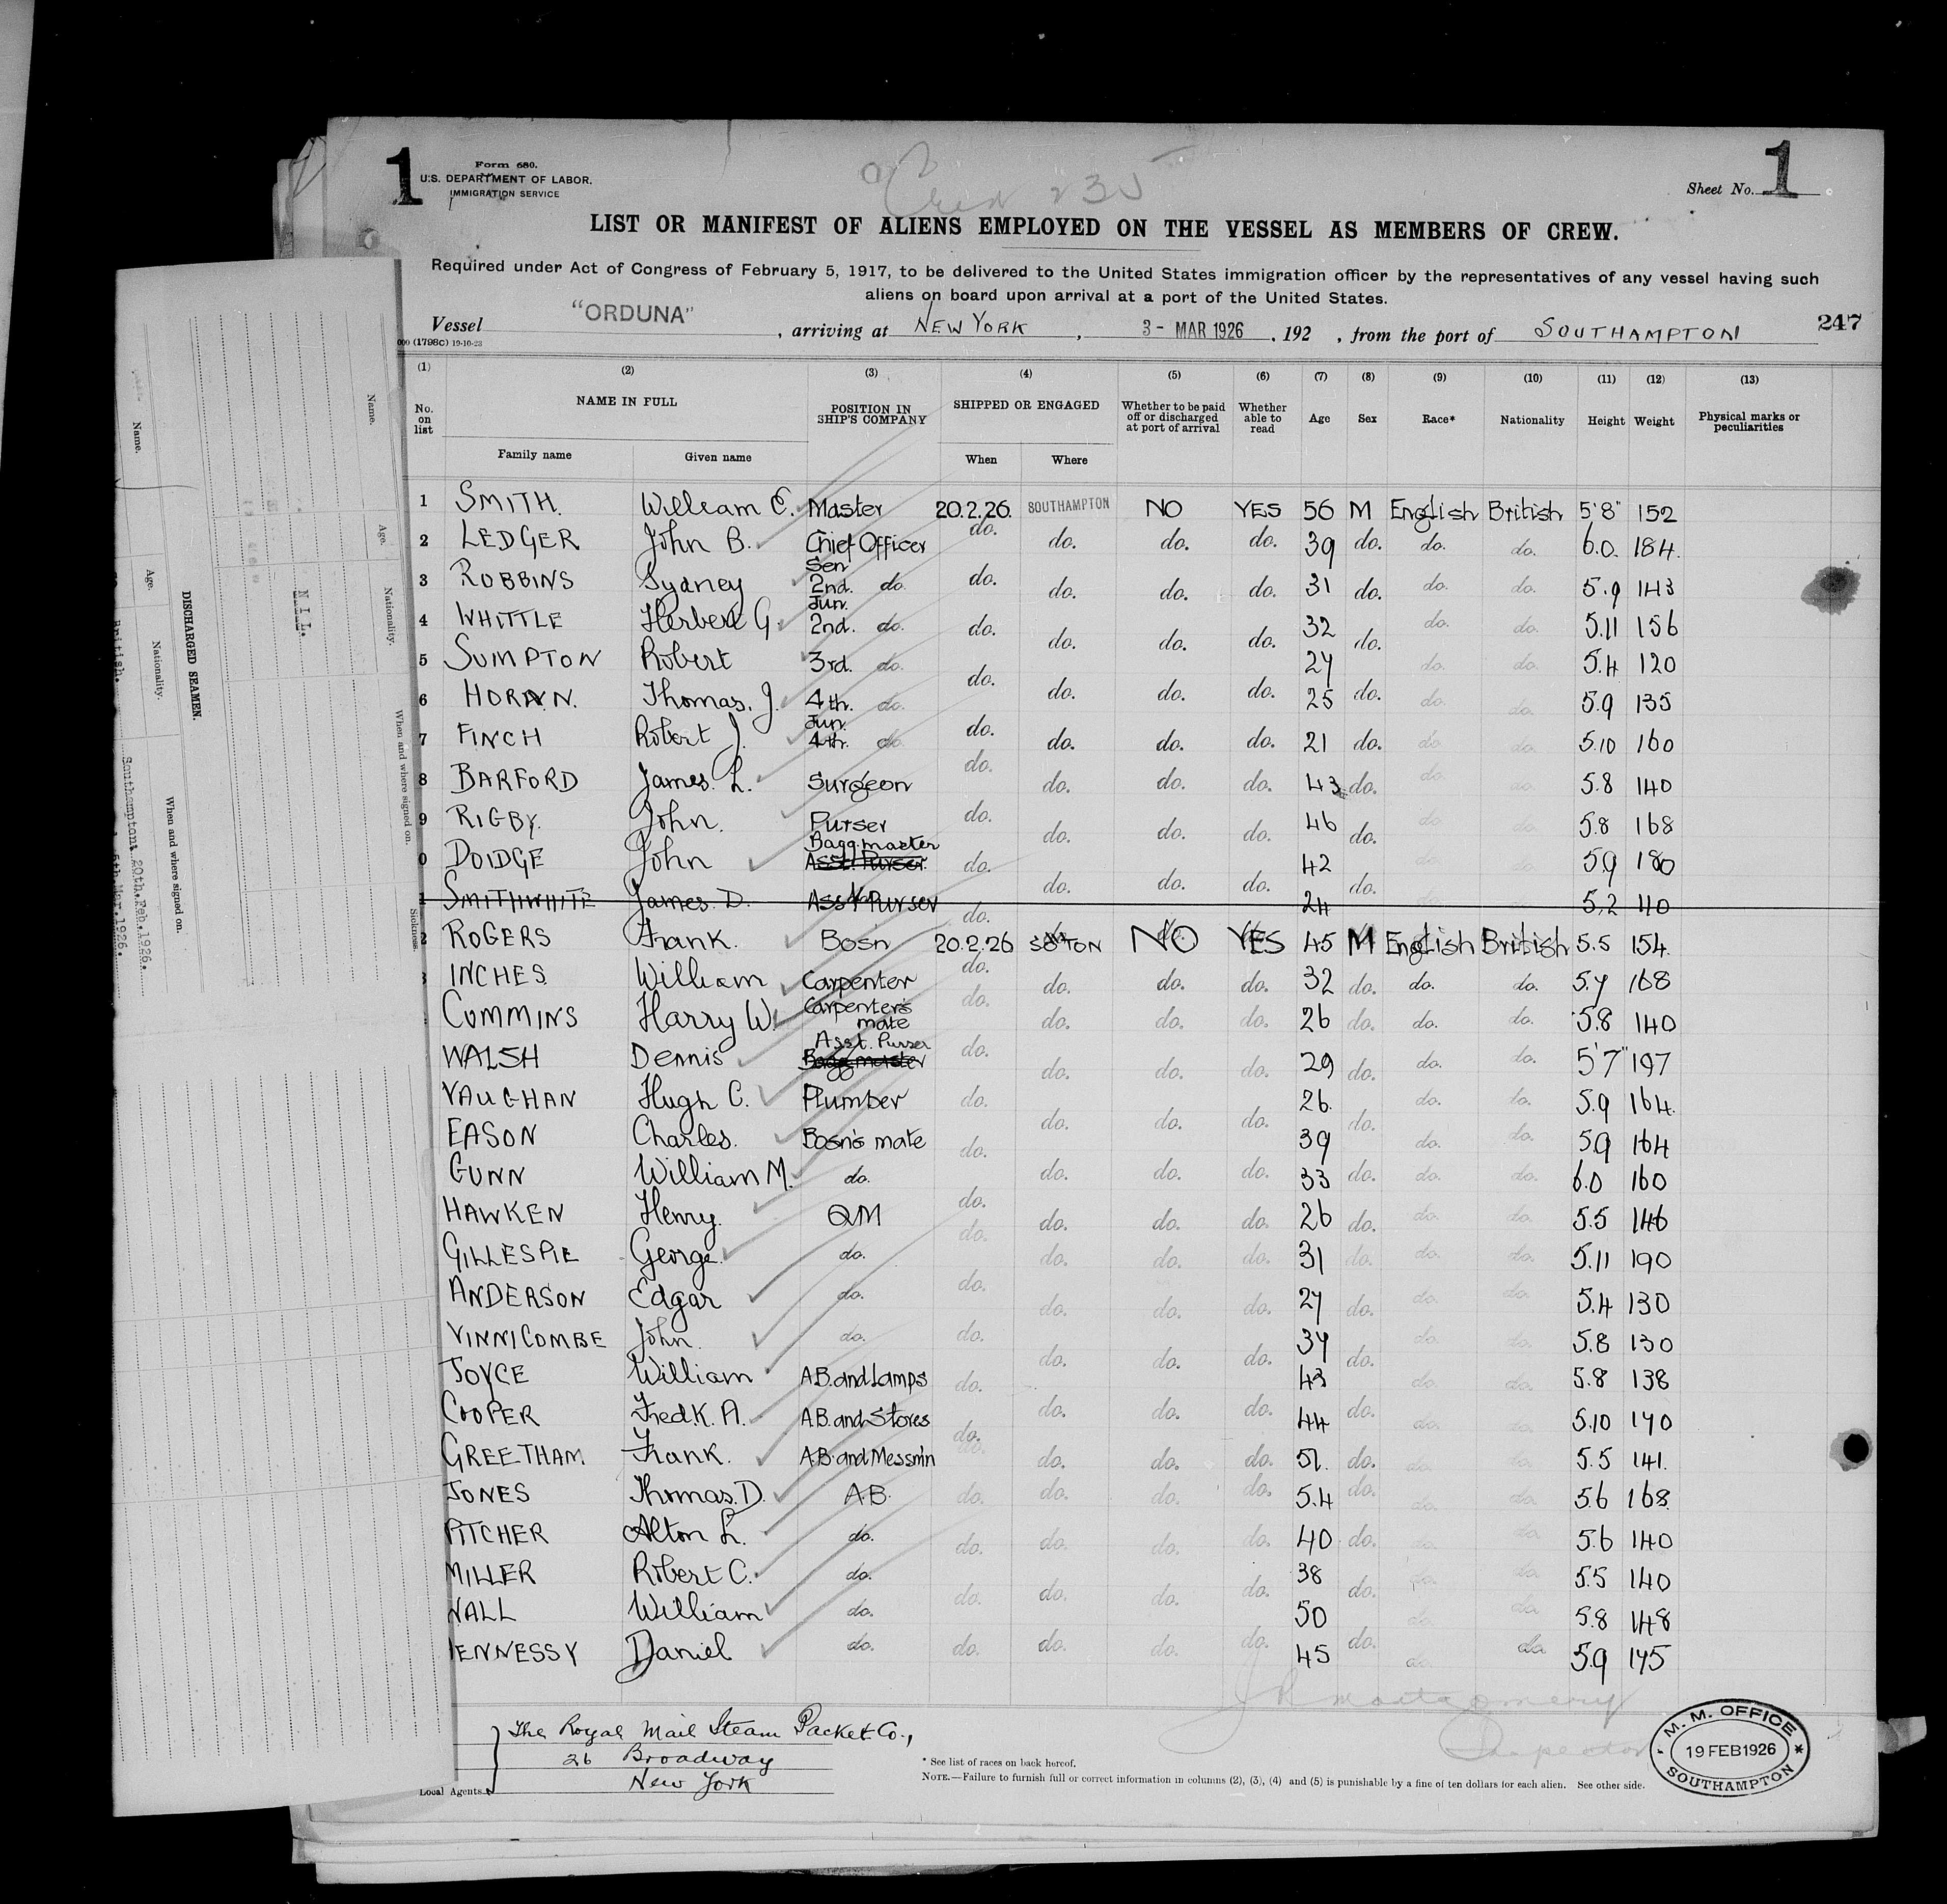 1
Form 680.
U.S. DEPARTMENT OF LABOR.
IMMIGRATION SERVICE
Crew 235
Sheet No. 1
LIST OR MANIFEST OF ALIENS EMPLOYED ON THE VESSEL AS MEMBERS OF CREW.
Required under Act of Congress of February 5, 1917, to be delivered to the United States immigration officer by the representatives of any vessel having such
aliens on board upon arrival at a port of the United States.
Vessel "ORDUNA", arriving at NEW YORK, 3 - MAR 1926, 192 , from the port of SOUTHAMPTON 247
(1798c) 19-10-23
(1) (2) (3) (4) (5) (6) (7) (8) (9) (10) (11) (12) (13)
No. on list NAME IN FULL POSITION IN SHIP'S COMPANY SHIPPED OR ENGAGED Whether to be paid off or discharged at port of arrival Whether able to read Age Sex Race* Nationality Height Weight Physical marks or peculiarities
Family name Given name When Where
1 SMITH. William E. Master 20.2.26. SOUTHAMPTON NO YES 56 M English British 5'8" 152
2 LEDGER John B. Chief Officer do. do. do. do. 39 do. do. do. 6.0. 184.
3 ROBBINS Sydney Sen 2nd. do. do. do. do. do. 31 do. do. do. 5.9 143
4 WHITTLE Herbert G. Jun. 2nd. do. do. do. do. do. 32 do. do. do. 5.11 156
5 SUMPTON Robert 3rd. do. do. do. do. do. 27 do. do. do. 5.4 120
6 HORAN. Thomas. J. 4th. do. do. do. do. do. 25 do. do. do. 5.9 135
7 FINCH Robert J. Jun. 4th. do. do. do. do. do. 21 do. do. do. 5.10 160
8 BARFORD James. L. Surgeon do. do. do. do. 43 do. do. do. 5.8 140
9 RIGBY. John. Purser do. do. do. do. 46 do. do. do. 5.8 168
0 DOIDGE John Bagg. master Asst. Purser. do. do. do. do. 42 do. do. do. 5.9 180
1 SMITHWHITE James. D. Asst Purser do. 24 5.2 110
2 ROGERS Frank. Bosn 20.2.26 SO'TON NO YES 45 M English British 5.5 154.
INCHES William Carpenter do. do. do. do. 32 do. do. do. 5.7 168
CUMMINS Harry W. Carpenter's mate do. do. do. do. 26 do. do. do. 5.8 140
WALSH Dennis Asst. Purser Bagg master do. do. do. do. 29 do. do. do. 5'7" 197
VAUGHAN Hugh C. Plumber do. do. do. do. 26. do. do. do. 5.9 164.
EASON Charles. Bosn's mate do. do. do. do. 39 do. do. do. 5.9 164
GUNN William M. do. do. do. do. do. 33 do. do. do. 6.0 160
HAWKEN Henry. QM do. do. do. do. 26 do. do. do. 5.5 146
GILLESPIE George. do. do. do. do. do. 31 do. do. do. 5.11 190
ANDERSON Edgar do. do. do. do. do. 27 do. do. do. 5.4 130
VINNICOMBE John. do. do. do. do. do. 37 do. do. do. 5.8 130
JOYCE William A.B. and Lamps do. do. do. do. 43 do. do. do. 5.8 138
COOPER Fredk. A. A.B. and Stores do. do. do. do. 44 do. do. do. 5.10 170
GREETHAM Frank. A.B. and Messm'n do. do. do. do. 51. do. do. do. 5.5 141.
JONES Thomas. D. A.B. do. do. do. do. 54 do. do. do. 5.6 168.
PITCHER Alton L. do. do. do. do. do. 40 do. do. do. 5.6 140
MILLER Robert C. do. do. do. do. do. 38 do. do. do. 5.5 140
WALL William do. 50 do. do. 5.8 148
ENNESSY Daniel do. do. do. do. do. 45 do. do. do. 5.9 175
J R Montgomery
Inspector
The Royal Mail Steam Packet Co.,
26 Broadway
New York
Local Agents
* See list of races on back hereof.
NOTE.—Failure to furnish full or correct information in columns (2), (3), (4) and (5) is punishable by a fine of ten dollars for each alien. See other side.
M. M. OFFICE
19 FEB 1926
SOUTHAMPTON
DISCHARGED SEAMEN.
Name. Age. Nationality. When and where signed on.
British. Southampton. 20th. Feb. 1926.
5th. Mar. 1926.
Name. Age. Nationality. When and where signed on. Sickness.
N.I.L.